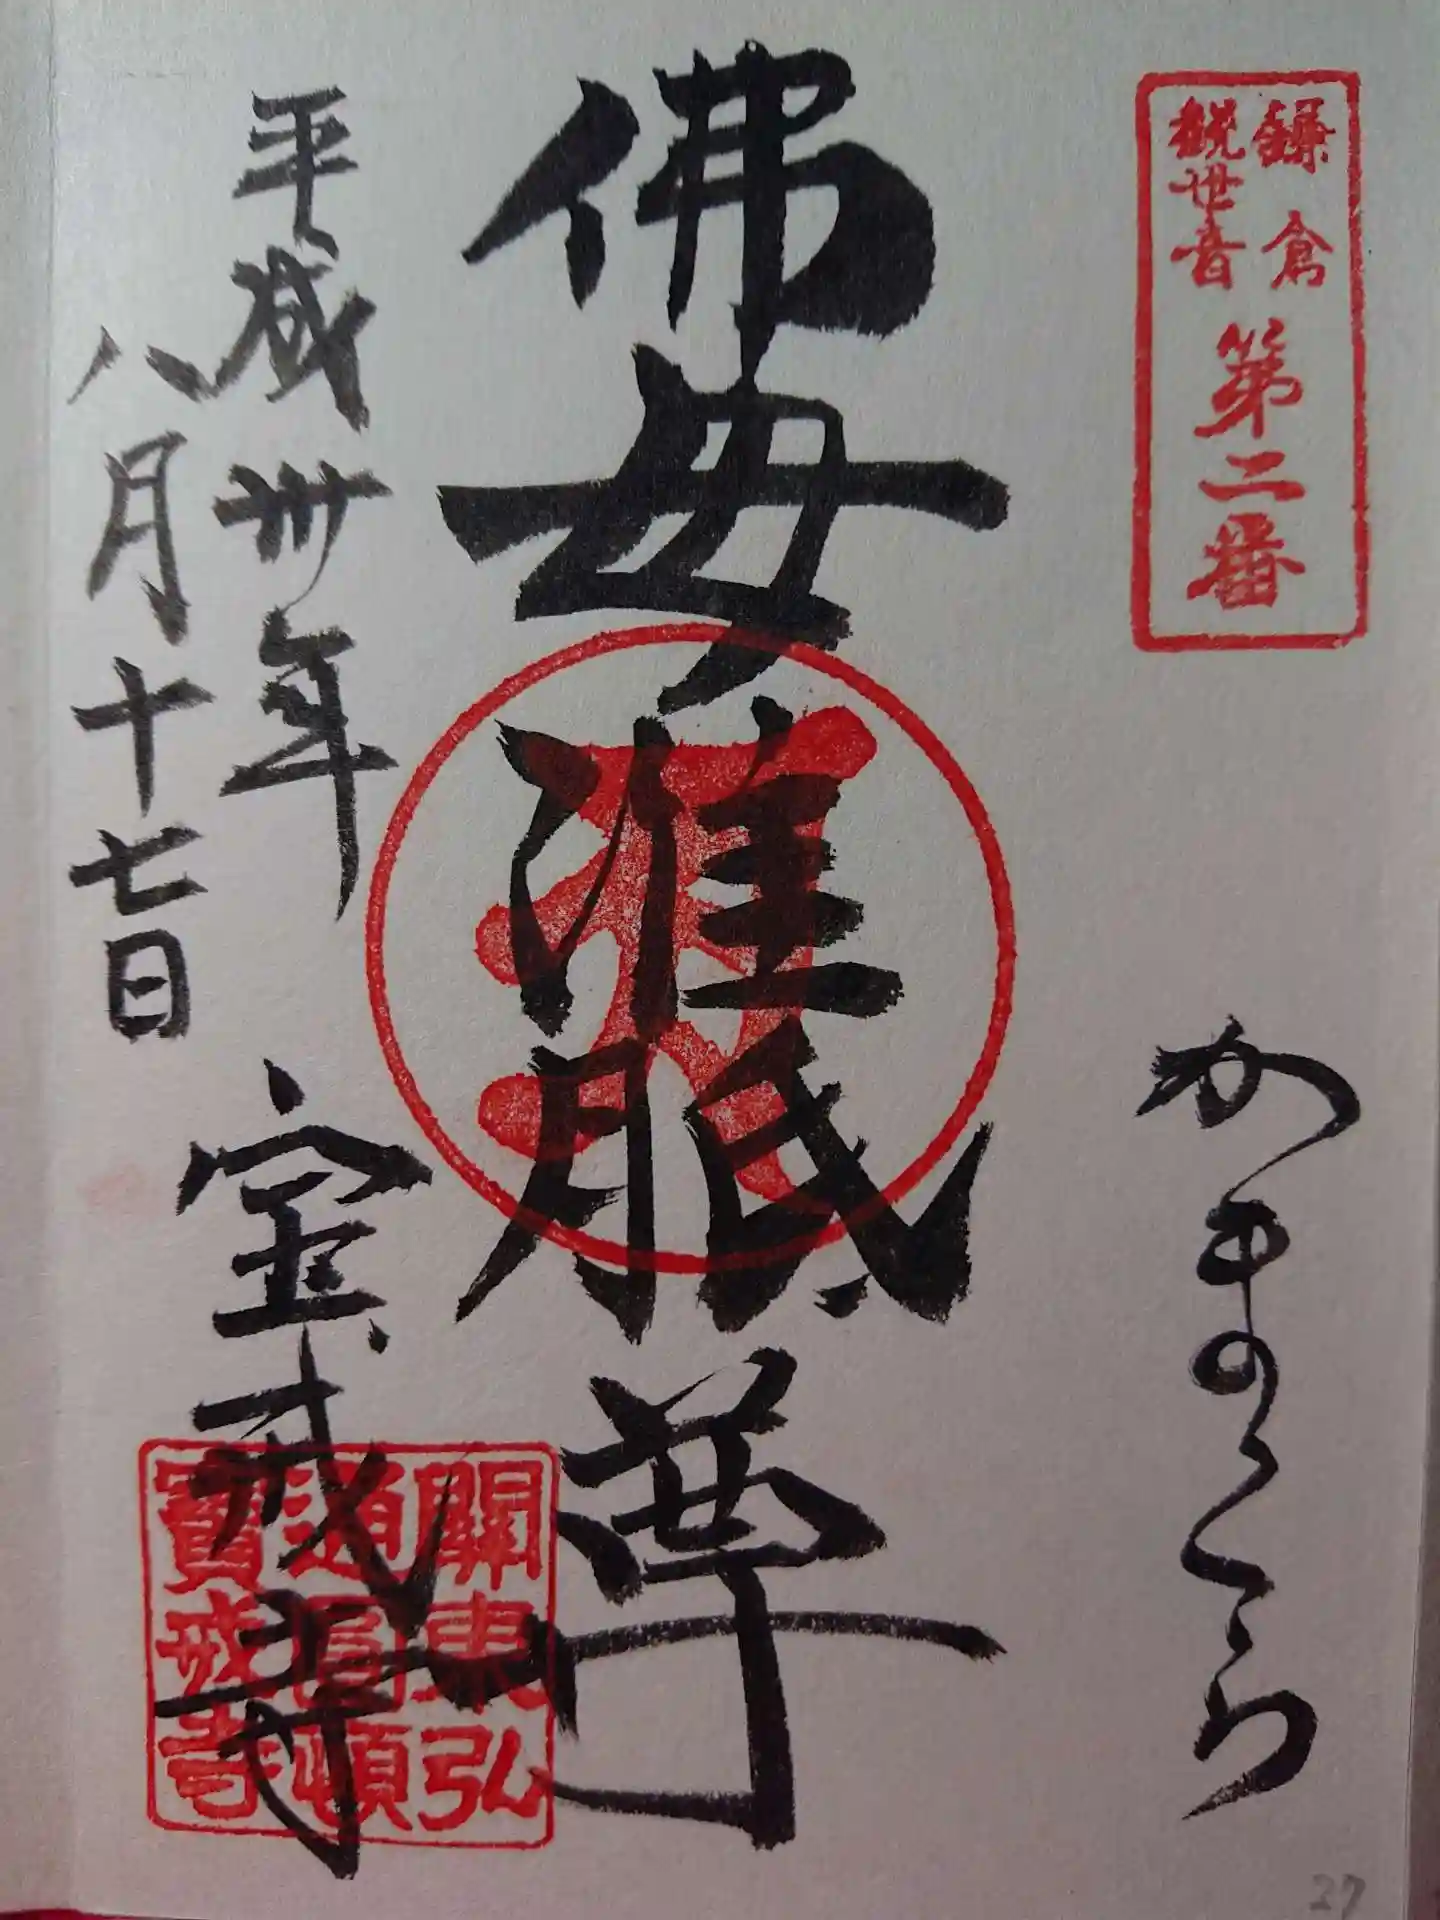 鎌倉
観世音
第二番
かまくら
佛母准胝尊
平成卅年
八月十七日
宝戒寺
關東弘
通圓頓
寶戒寺
27